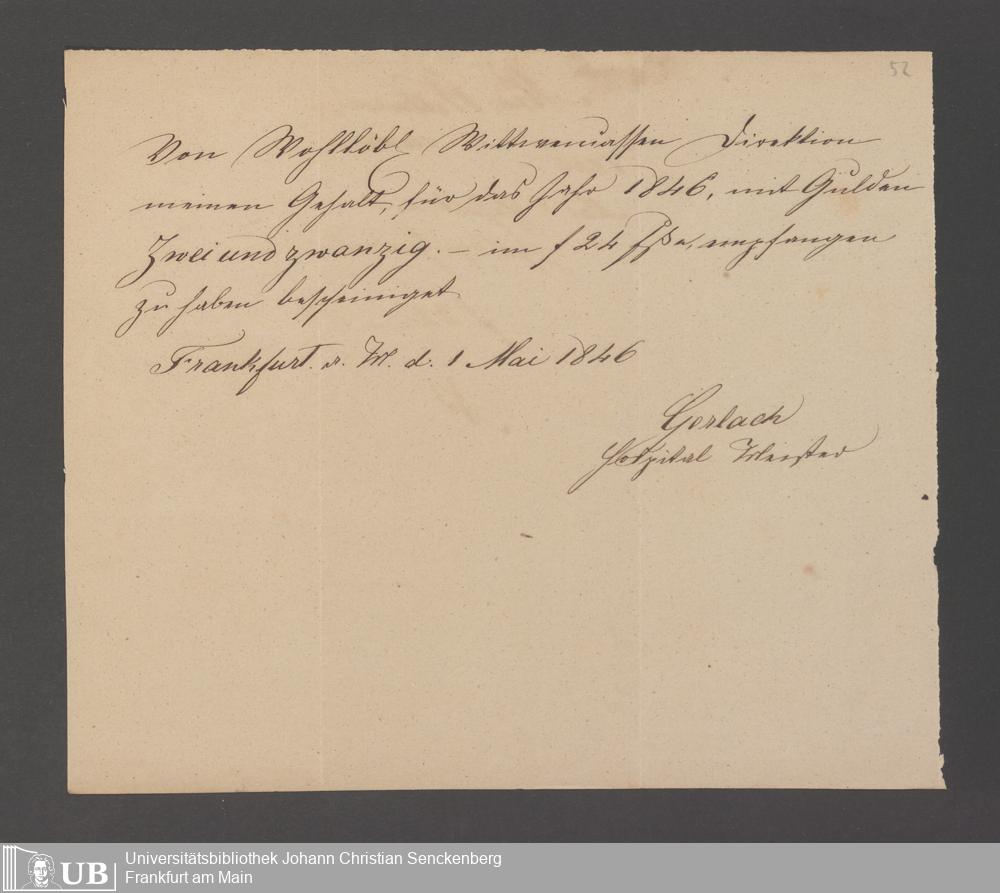 52
Von Wohllöbl Wittwencassen Direktion
meinen Gehalt, für das Jahr 1846, mit Gulden
Zwei und zwanzig. – im f 24 empfangen
zu haben bescheiniget
Frankfurt a. M. d. 1 Mai 1846
Gerlach
Hospital Meister
UB
Universitätsbibliothek Johann Christian Senckenberg
Frankfurt am Main